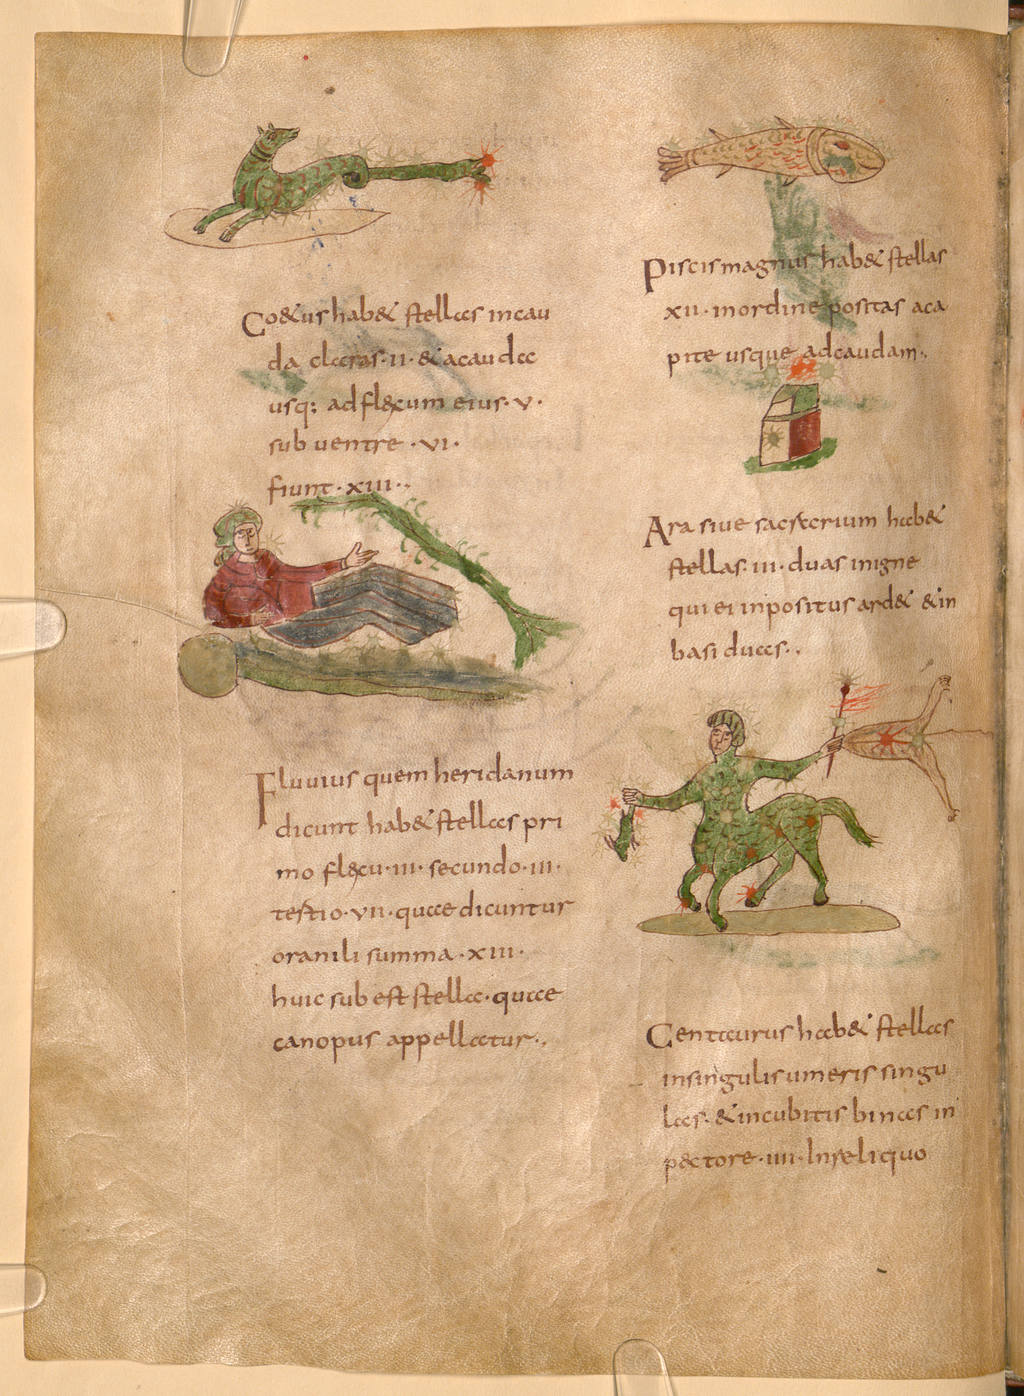 Coetus hab& stellas incau
da claras · II · & acauda
usq: adflexum eius · v ·
sub uentre · vi ·
fiunt · xiii ·,
Fluuius quem heridanum
dicunt hab& stellas pri
mo flexu · iii · secundo · iii ·
tertio · vii · quae dicuntur
oranili summa · xiii ·
huic sub est stella · quae
canopus appellatur ·,
Piscis magnus hab& stellas
xii · inordine positas aca
pite usque adcaudam ·,
Ara siue sacrarium hab&
stellas · iii · duas inigne
qui ei inpositus ard& & in
basi duas ·,
Centaurus hab& stellas
insingulis umeris singu
las · & incubitis binas in
pectore · iiii · Inreliquo